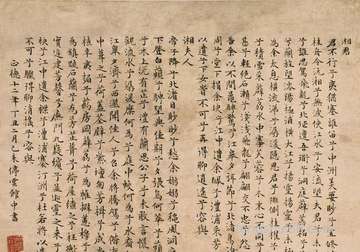 湘君
君不行兮夷猶蹇誰留兮中洲美要眇兮宜修沛吾乘兮
桂舟令沅湘兮無波使江水兮安流望夫君兮未來吹參差
兮誰思駕飛龍兮北征邅吾道兮洞庭薜荔柏兮蕙綢蓀橈
兮蘭旌望涔陽兮極浦橫大江兮揚靈揚靈兮未極女嬋媛
兮為余太息橫流涕兮潺湲隱思君兮陫側桂櫂兮蘭枻斲冰
兮積雪采薜荔兮水中搴芙蓉兮木末心不同兮媒勞恩不
甚兮輕絕石瀨兮淺淺飛龍兮翩翩交不忠兮怨長期不信兮
告余以不閒鼂騁騖兮江皋夕弭節兮北渚鳥次兮屋上水
周兮堂下捐余玦兮江中遺余佩兮澧浦采芳洲兮杜若將
以遺兮下女時不可兮再得聊逍遙兮容與
湘夫人
帝子降兮北渚目眇眇兮愁余嫋嫋兮秋風洞庭波兮木葉
下登白薠兮騁望與佳期兮夕張鳥萃兮蘋中罾何為
兮木上沅有芷兮澧有蘭思公子兮未敢言慌惚兮遠望
觀流水兮潺湲麋何食兮庭中蛟何為兮水裔朝馳余馬兮
江皋夕濟兮西澨聞佳人兮召余將騰駕兮偕逝築室兮水
中葺之兮荷蓋蓀壁兮紫壇播芳椒兮成堂
桂棟兮蘭橑辛夷楣兮葯房罔薜荔兮為帷擗蕙櫋兮既張白玉兮
為鎮疏石蘭兮為芳芷葺兮荷屋繚之兮杜衡合百草兮
實庭建芳馨兮廡門九嶷繽兮並迎靈之來兮如雲捐余
袂兮江中遺余褋兮澧浦搴汀洲兮杜若將以遺兮遠者時
不可兮驟得聊逍遙兮容與
正德十二年丁丑二月己未停雲館中書